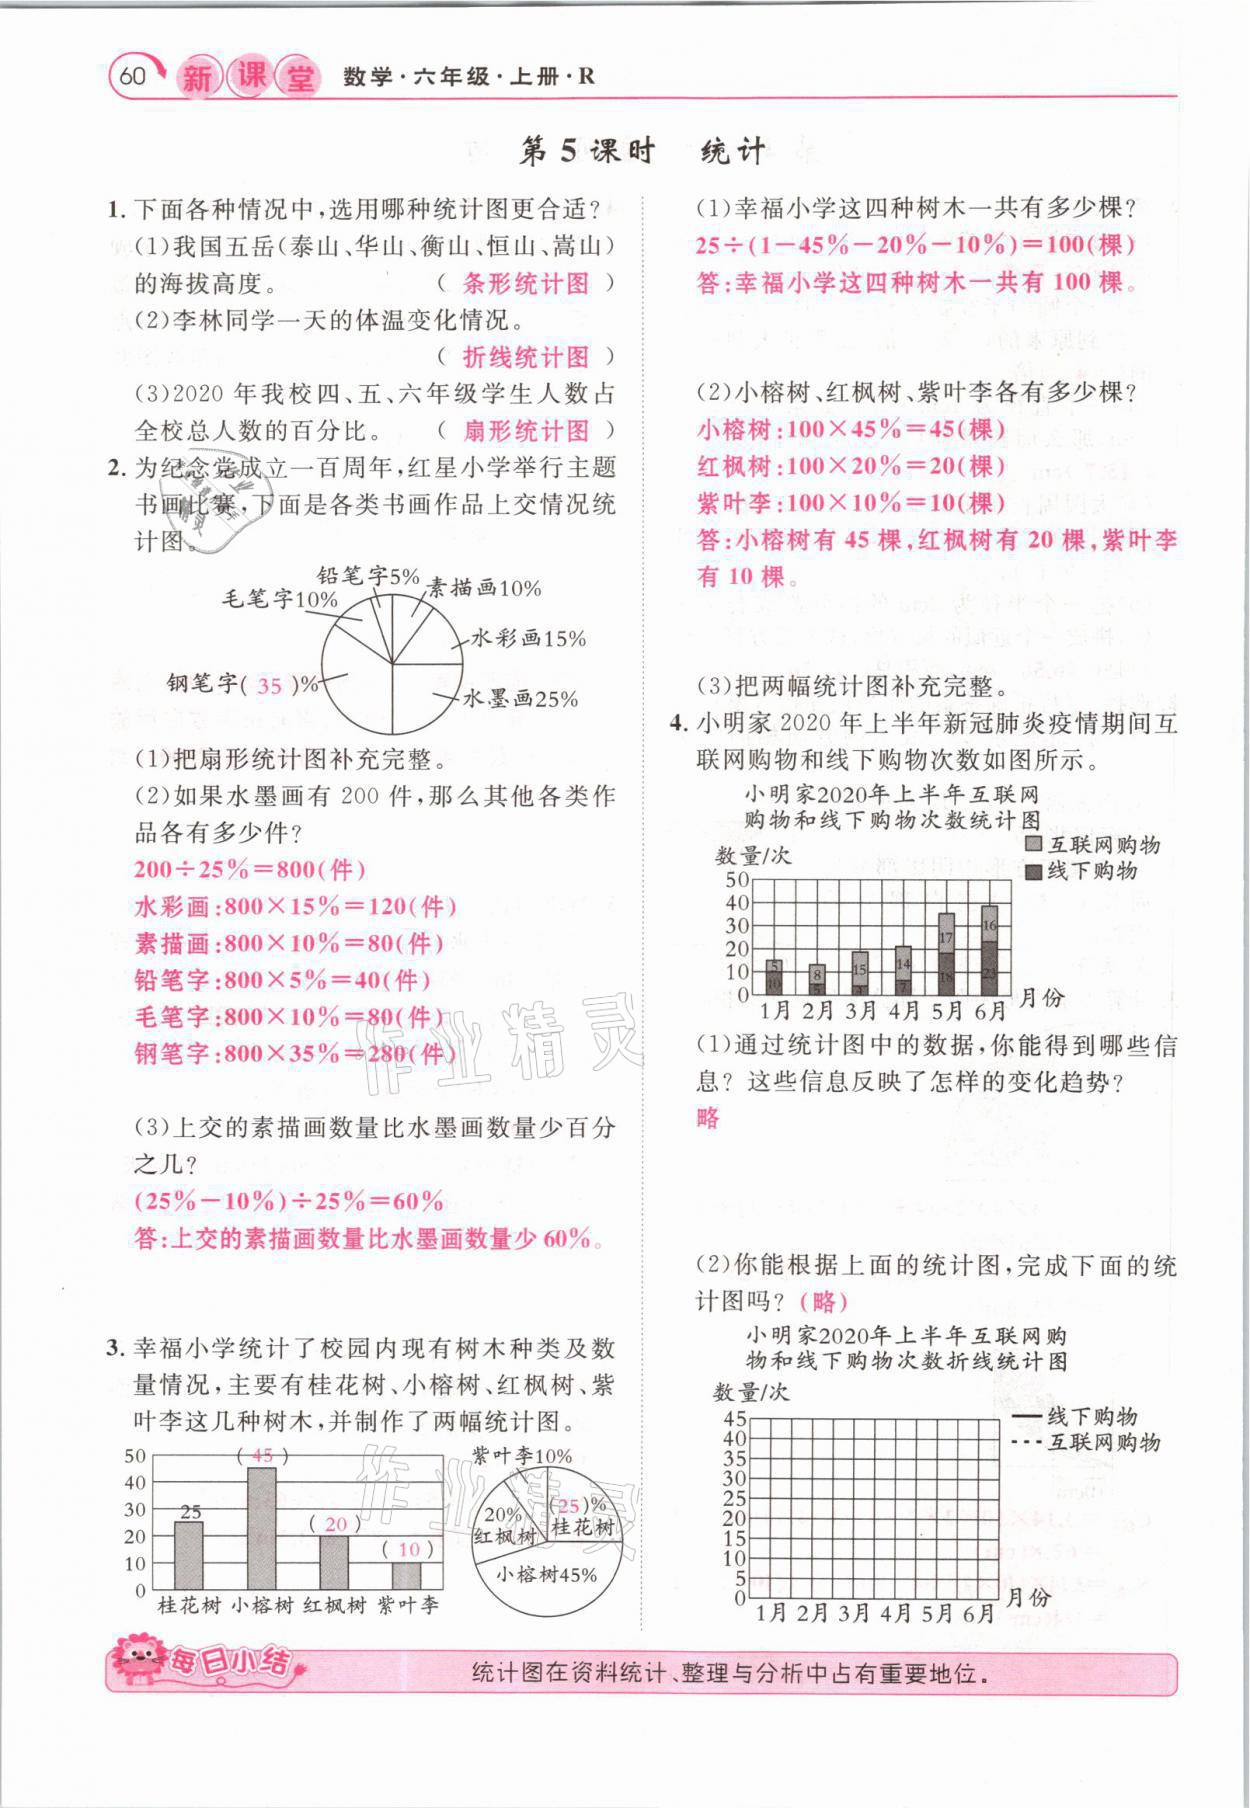 60 新课堂 数学·六年级·上册·R
第5课时 统计
1. 下面各种情况中,选用哪种统计图更合适?
(1)我国五岳(泰山、华山、衡山、恒山、嵩山)
的海拔高度。 ( 条形统计图 )
(2)李林同学一天的体温变化情况。
( 折线统计图 )
(3)2020 年我校四、五、六年级学生人数占
全校总人数的百分比。 ( 扇形统计图 )
2. 为纪念党成立一百周年,红星小学举行主题
书画比赛,下面是各类书画作品上交情况统
计图。
铅笔字5%
素描画10%
毛笔字10%
水彩画15%
钢笔字( 35 )%
水墨画25%
(1)把扇形统计图补充完整。
(2)如果水墨画有 200 件,那么其他各类作
品各有多少件?
200÷25%=800(件)
水彩画:800×15%=120(件)
素描画:800×10%=80(件)
铅笔字:800×5%=40(件)
毛笔字:800×10%=80(件)
钢笔字:800×35%=280(件)
(3)上交的素描画数量比水墨画数量少百分
之几?
(25%-10%)÷25%=60%
答:上交的素描画数量比水墨画数量少60%。
3. 幸福小学统计了校园内现有树木种类及数
量情况,主要有桂花树、小榕树、红枫树、紫
叶李这几种树木,并制作了两幅统计图。
50
40
30
20
10
0
25
( 45 )
( 20 )
( 10 )
桂花树 小榕树 红枫树 紫叶李
紫叶李10%
20%
红枫树
(25)%
桂花树
小榕树45%
(1)幸福小学这四种树木一共有多少棵?
25÷(1-45%-20%-10%)=100(棵)
答:幸福小学这四种树木一共有 100 棵。
(2)小榕树、红枫树、紫叶李各有多少棵?
小榕树:100×45%=45(棵)
红枫树:100×20%=20(棵)
紫叶李:100×10%=10(棵)
答:小榕树有 45 棵,红枫树有 20 棵,紫叶李
有 10 棵。
(3)把两幅统计图补充完整。
4. 小明家 2020 年上半年新冠肺炎疫情期间互
联网购物和线下购物次数如图所示。
小明家2020年上半年互联网
购物和线下购物次数统计图
数量/次
互联网购物
线下购物
50
40
30
20
10
0
5 8 15 14 17 16
10 5 7 18 23
1月 2月 3月 4月 5月 6月 月份
(1)通过统计图中的数据,你能得到哪些信
息? 这些信息反映了怎样的变化趋势?
略
(2)你能根据上面的统计图,完成下面的统
计图吗? (略)
小明家2020年上半年互联网购
物和线下购物次数折线统计图
数量/次
线下购物
互联网购物
45
40
35
30
25
20
15
10
5
0
1月 2月 3月 4月 5月 6月 月份
每日小结
统计图在资料统计、整理与分析中占有重要地位。
作业精灵
作业精灵